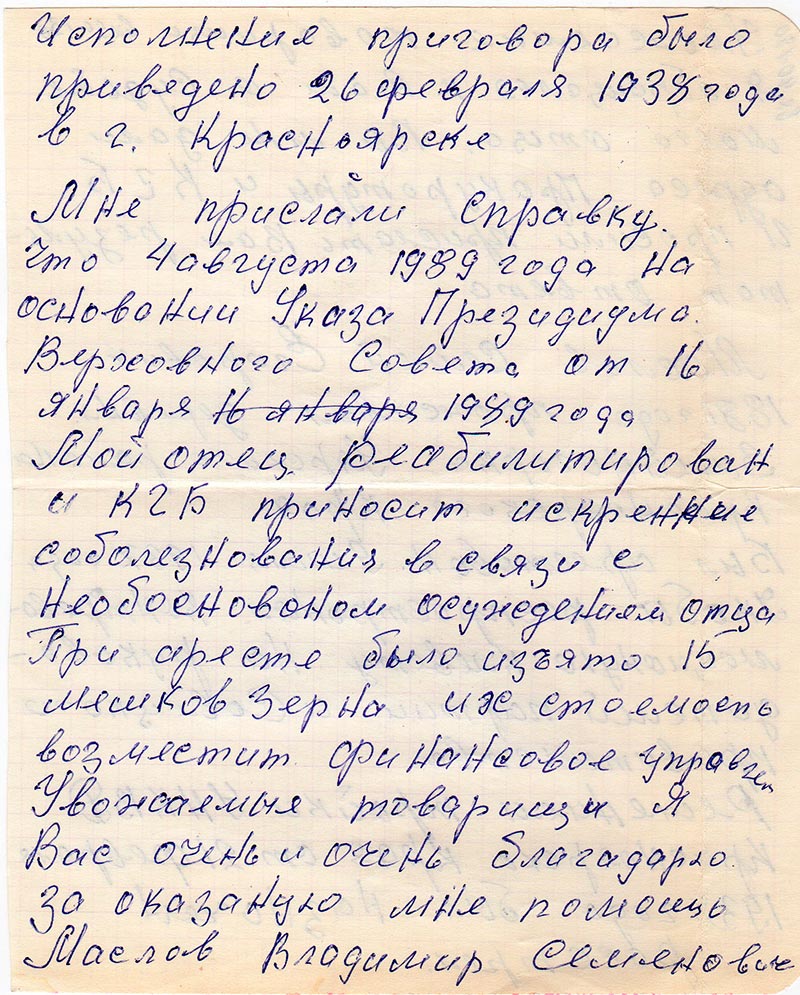 Исполнения приговора было
приведено 26 февраля 1938 года
в г. Красноярске
Мне прислали справку.
что 4 августа 1989 года на
основании Указа Президиума.
Верховного Совета от 16
января 16 января 1989 года
Мой отец реабилитирован
и КГБ приносит искренние
соболезнования в связи с
необоснованом осуждением отца
При аресте было изъято 15
мешков зерна их стоемость
возместит финансовое управлен
Уважаемые товарищи Я
Вас очень и очень благадарю
за оказаную мне помощь
Маслов Владимир Семенович